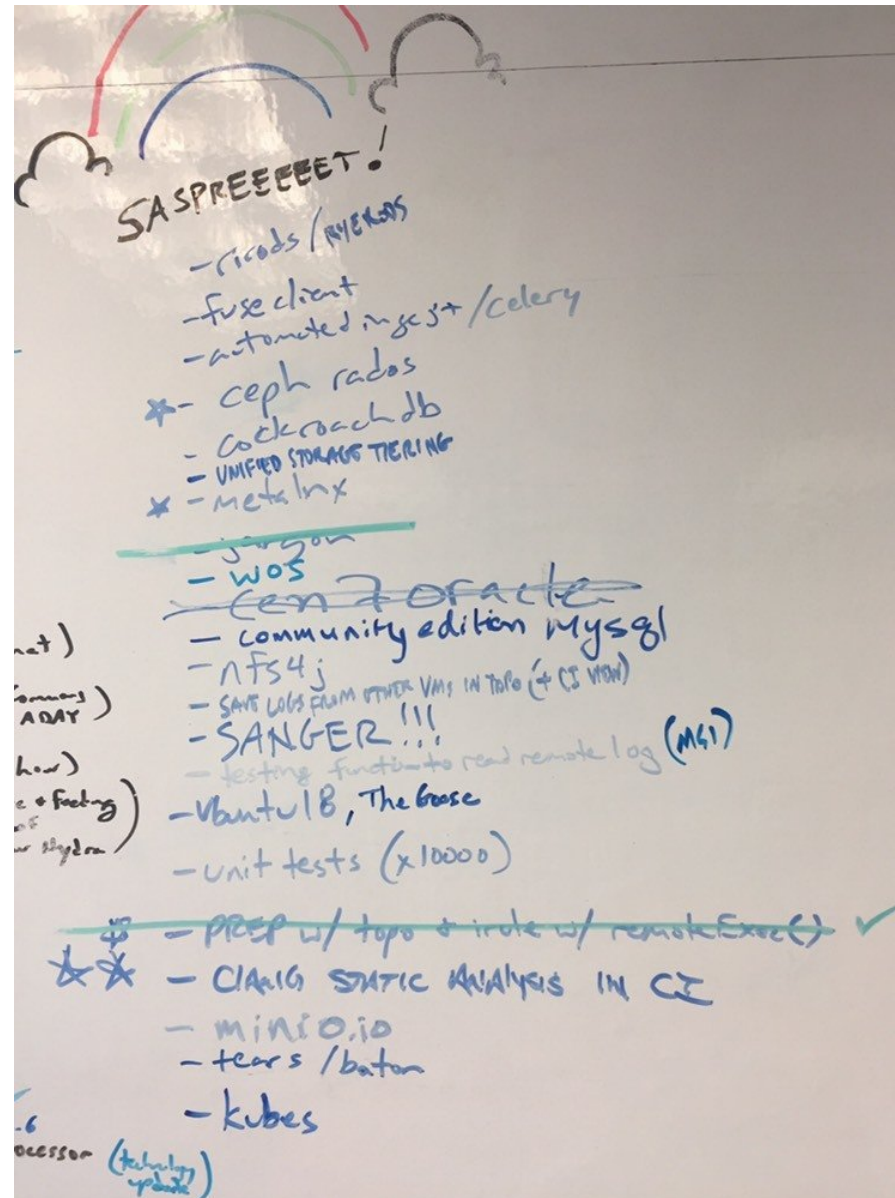 SASPREEEEET!
- ricods / RYERODS
- fuse client
- automated ingest / celery
- ceph rados
- cockroach db
- UNIFIED STORAGE TIERING
- metalnx
- jargon
- WOS
- cen 7 oracle
- community edition Mysql
- nfs4j
- SAVE LOGS FROM OTHER VMS IN TOPO (+ CI VIEW)
- SANGER!!!
- testing function to read remote log (MGI)
- Ubuntu18, The Goose
- unit tests (x10000)
- PREP w/ topo + irule w/ remoteExec()
- CLANG STATIC ANALYSIS IN CI
- minio.io
- tears / baton
- kubes
ADAY)
(technology
update)